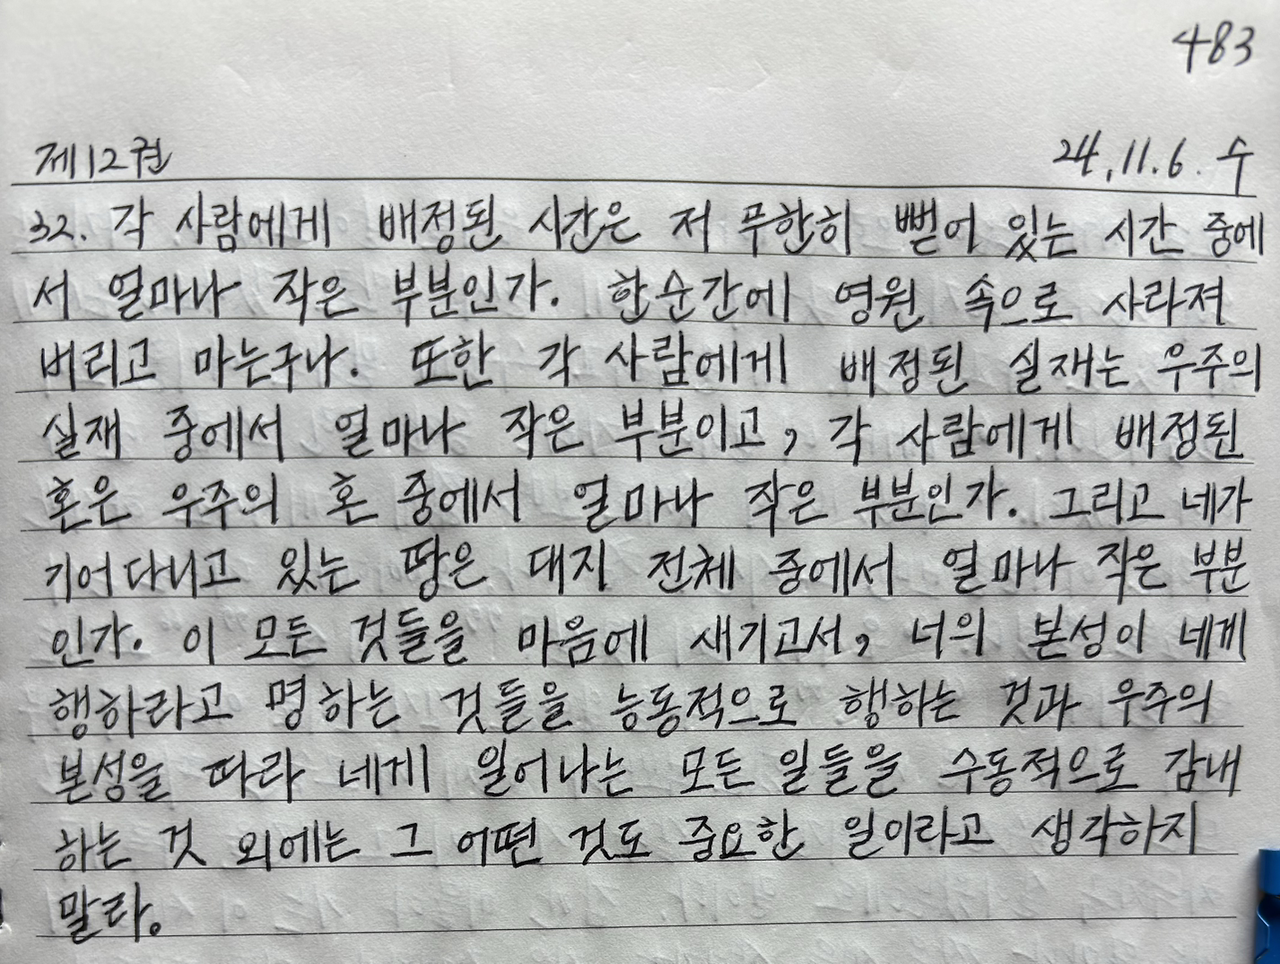 483
제12권 24.11.6. 수
32. 각 사람에게 배정된 시간은 저 무한히 뻗어 있는 시간 중에
서 얼마나 작은 부분인가. 한순간에 영원 속으로 사라져
버리고 마는구나. 또한 각 사람에게 배정된 실재는 우주의
실재 중에서 얼마나 작은 부분이고, 각 사람에게 배정된
혼은 우주의 혼 중에서 얼마나 작은 부분인가. 그리고 네가
기어다니고 있는 땅은 대지 전체 중에서 얼마나 작은 부분
인가. 이 모든 것들을 마음에 새기고서, 너의 본성이 네게
행하라고 명하는 것들을 능동적으로 행하는 것과 우주의
본성을 따라 네게 일어나는 모든 일들을 수동적으로 감내
하는 것 외에는 그 어떤 것도 중요한 일이라고 생각하지
말라.